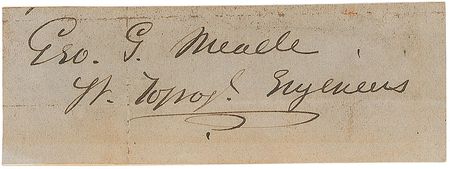 Geo. G. Meade
Lt. Topogl. Engineers